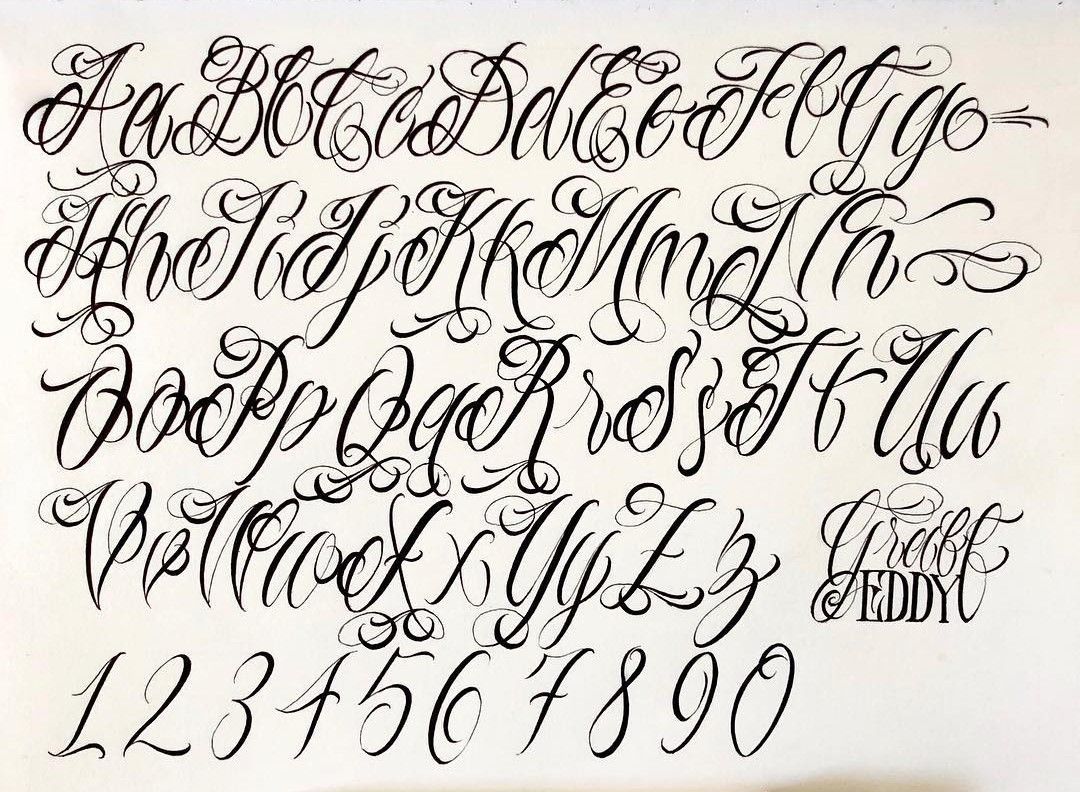 Aa Bb Cc Dd Ee Ff Gg
Hh Ii Jj Kk Mm Nn
Oo Pp Qq Rr Ss Tt Uu
Vv Ww Xx Yy Zz
EDDY
1 2 3 4 5 6 7 8 9 0